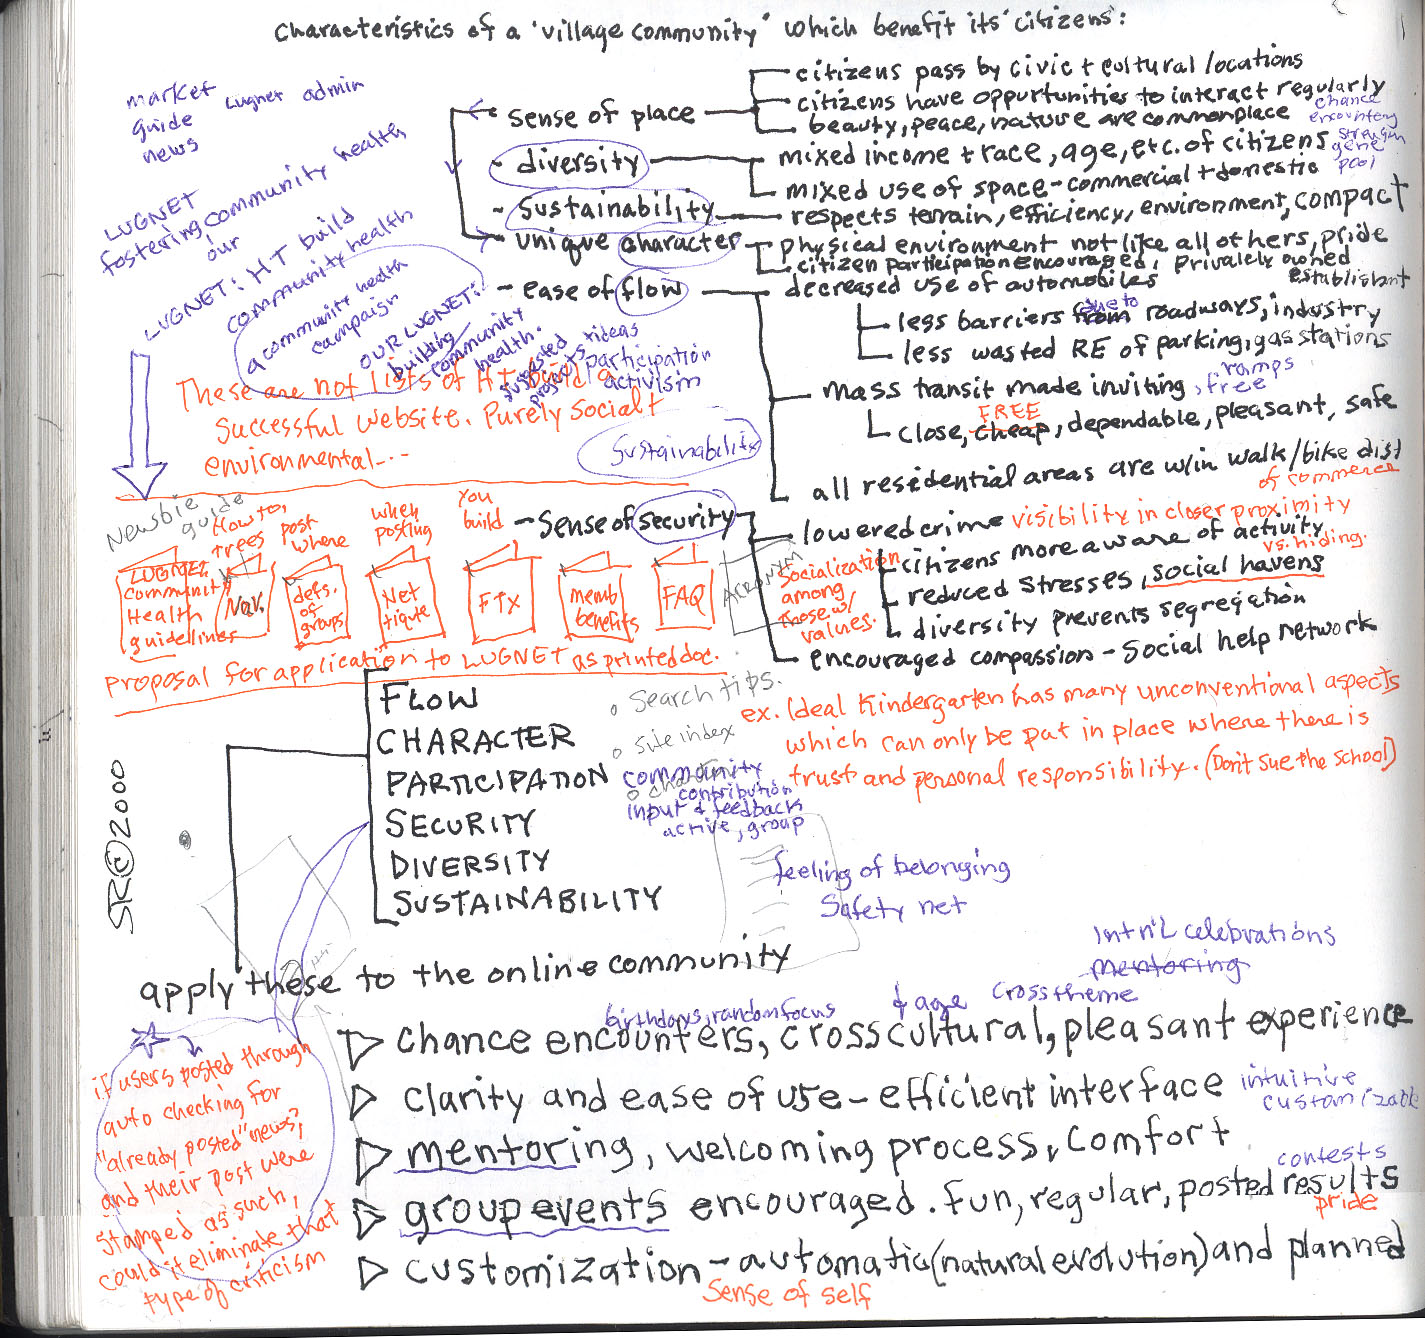 Characteristics of a "village community" which benefit its citizens:
market
guide
news
Lugnet admin
LUGNET
fostering community health
our
LUGNET: HT build
community health
a community health
campaign
OUR LUGNET:
building
community
health.
suggested
projects + ideas
participation
activism
sense of place
citizens pass by civic + cultural locations
citizens have oppurtunities to interact regularly
beauty, peace, nature are commonplace
chance
encounters
strengthn
gene
pool
- diversity
mixed income + race, age, etc. of citizens
mixed use of space - commercial + domestic
- Sustainability
respects terrain, efficiency, environment, compact
- unique character
physical environment not like all others, pride
citizen participation encouraged, privately owned
establishment
- ease of flow
decreased use of automobiles
less barriers from due to roadways, industry
less wasted RE of parking, gas stations
mass transit made inviting, free
ramps
close, cheap, dependable, pleasant, safe
FREE
all residential areas are w/in walk/bike dist
of commerce
These are not Lists of HT build a
Successful website. Purely social +
environmental---
Sustainability
- Sense of security
lowered crime visibility in closer proximity
vs. hiding.
citizens more aware of activity
reduced stresses, social havens
diversity prevents segregation
encouraged compassion - Social help network
Socialization
among
those w/
values.
Newbie
guide
How to,
trees
post
where
when
posting
You
build
LUGNET
Community
Health
guidelines
Nav.
defs.
of
groups
Net
tiquite
FTX
memb
benefits
FAQ
ACRONYM
Proposal for application to LUGNET as printed doc.
ex. Ideal Kindergarten has many unconventional aspects
which can only be put in place where there is
trust and personal responsibility. (Don't Sue the School)
FLOW
CHARACTER
PARTICIPATION
SECURITY
DIVERSITY
SUSTAINABILITY
o search tips.
o site index
o chat
community
contribution
input & feedback
active, group
feeling of belonging
Safety net
SR©2000
apply these to the online community
Intn'l celebrations
mentoring
& age
cross theme
birthdays, random focus
▷ chance encounters, cross cultural, pleasant experience
▷ clarity and ease of use - efficient interface
intuitive
customizable
▷ mentoring, welcoming process, comfort
▷ group events encouraged. fun, regular, posted results
contests
pride
▷ customization - automatic (natural evolution) and planned
Sense of self
if users posted through
auto checking for
"already posted" news,
and their post were
stamped as such,
could it eliminate that
type of criticism